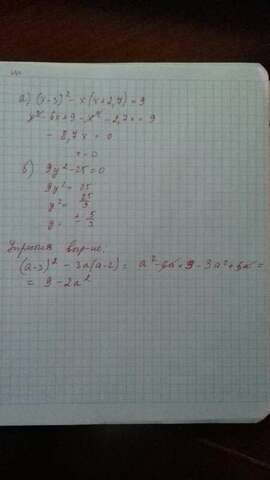 а) (x-3)² - x(x+2,7) = 9
x² - 6x + 9 - x² - 2,7x = 9
- 8,7x = 0
x = 0
б) 9y² - 25 = 0
9y² = 25
y² = 25/9
y = ± 5/3
Упрости выр-ие.
(a-3)² - 3a(a-2) = a² - 6a + 9 - 3a² + 6a =
= 9 - 2a²